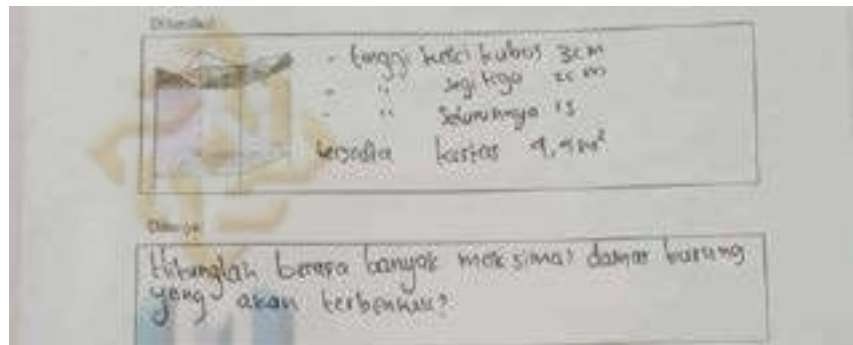 Diketahui:
- tinggi sisi kubus 3cm
- " segitiga 2cm
- " Seluruhnya 15
tersedia kertas
Ditanya:
Hitunglah berapa banyak maksimal damar burung
yang akan terbentuk?